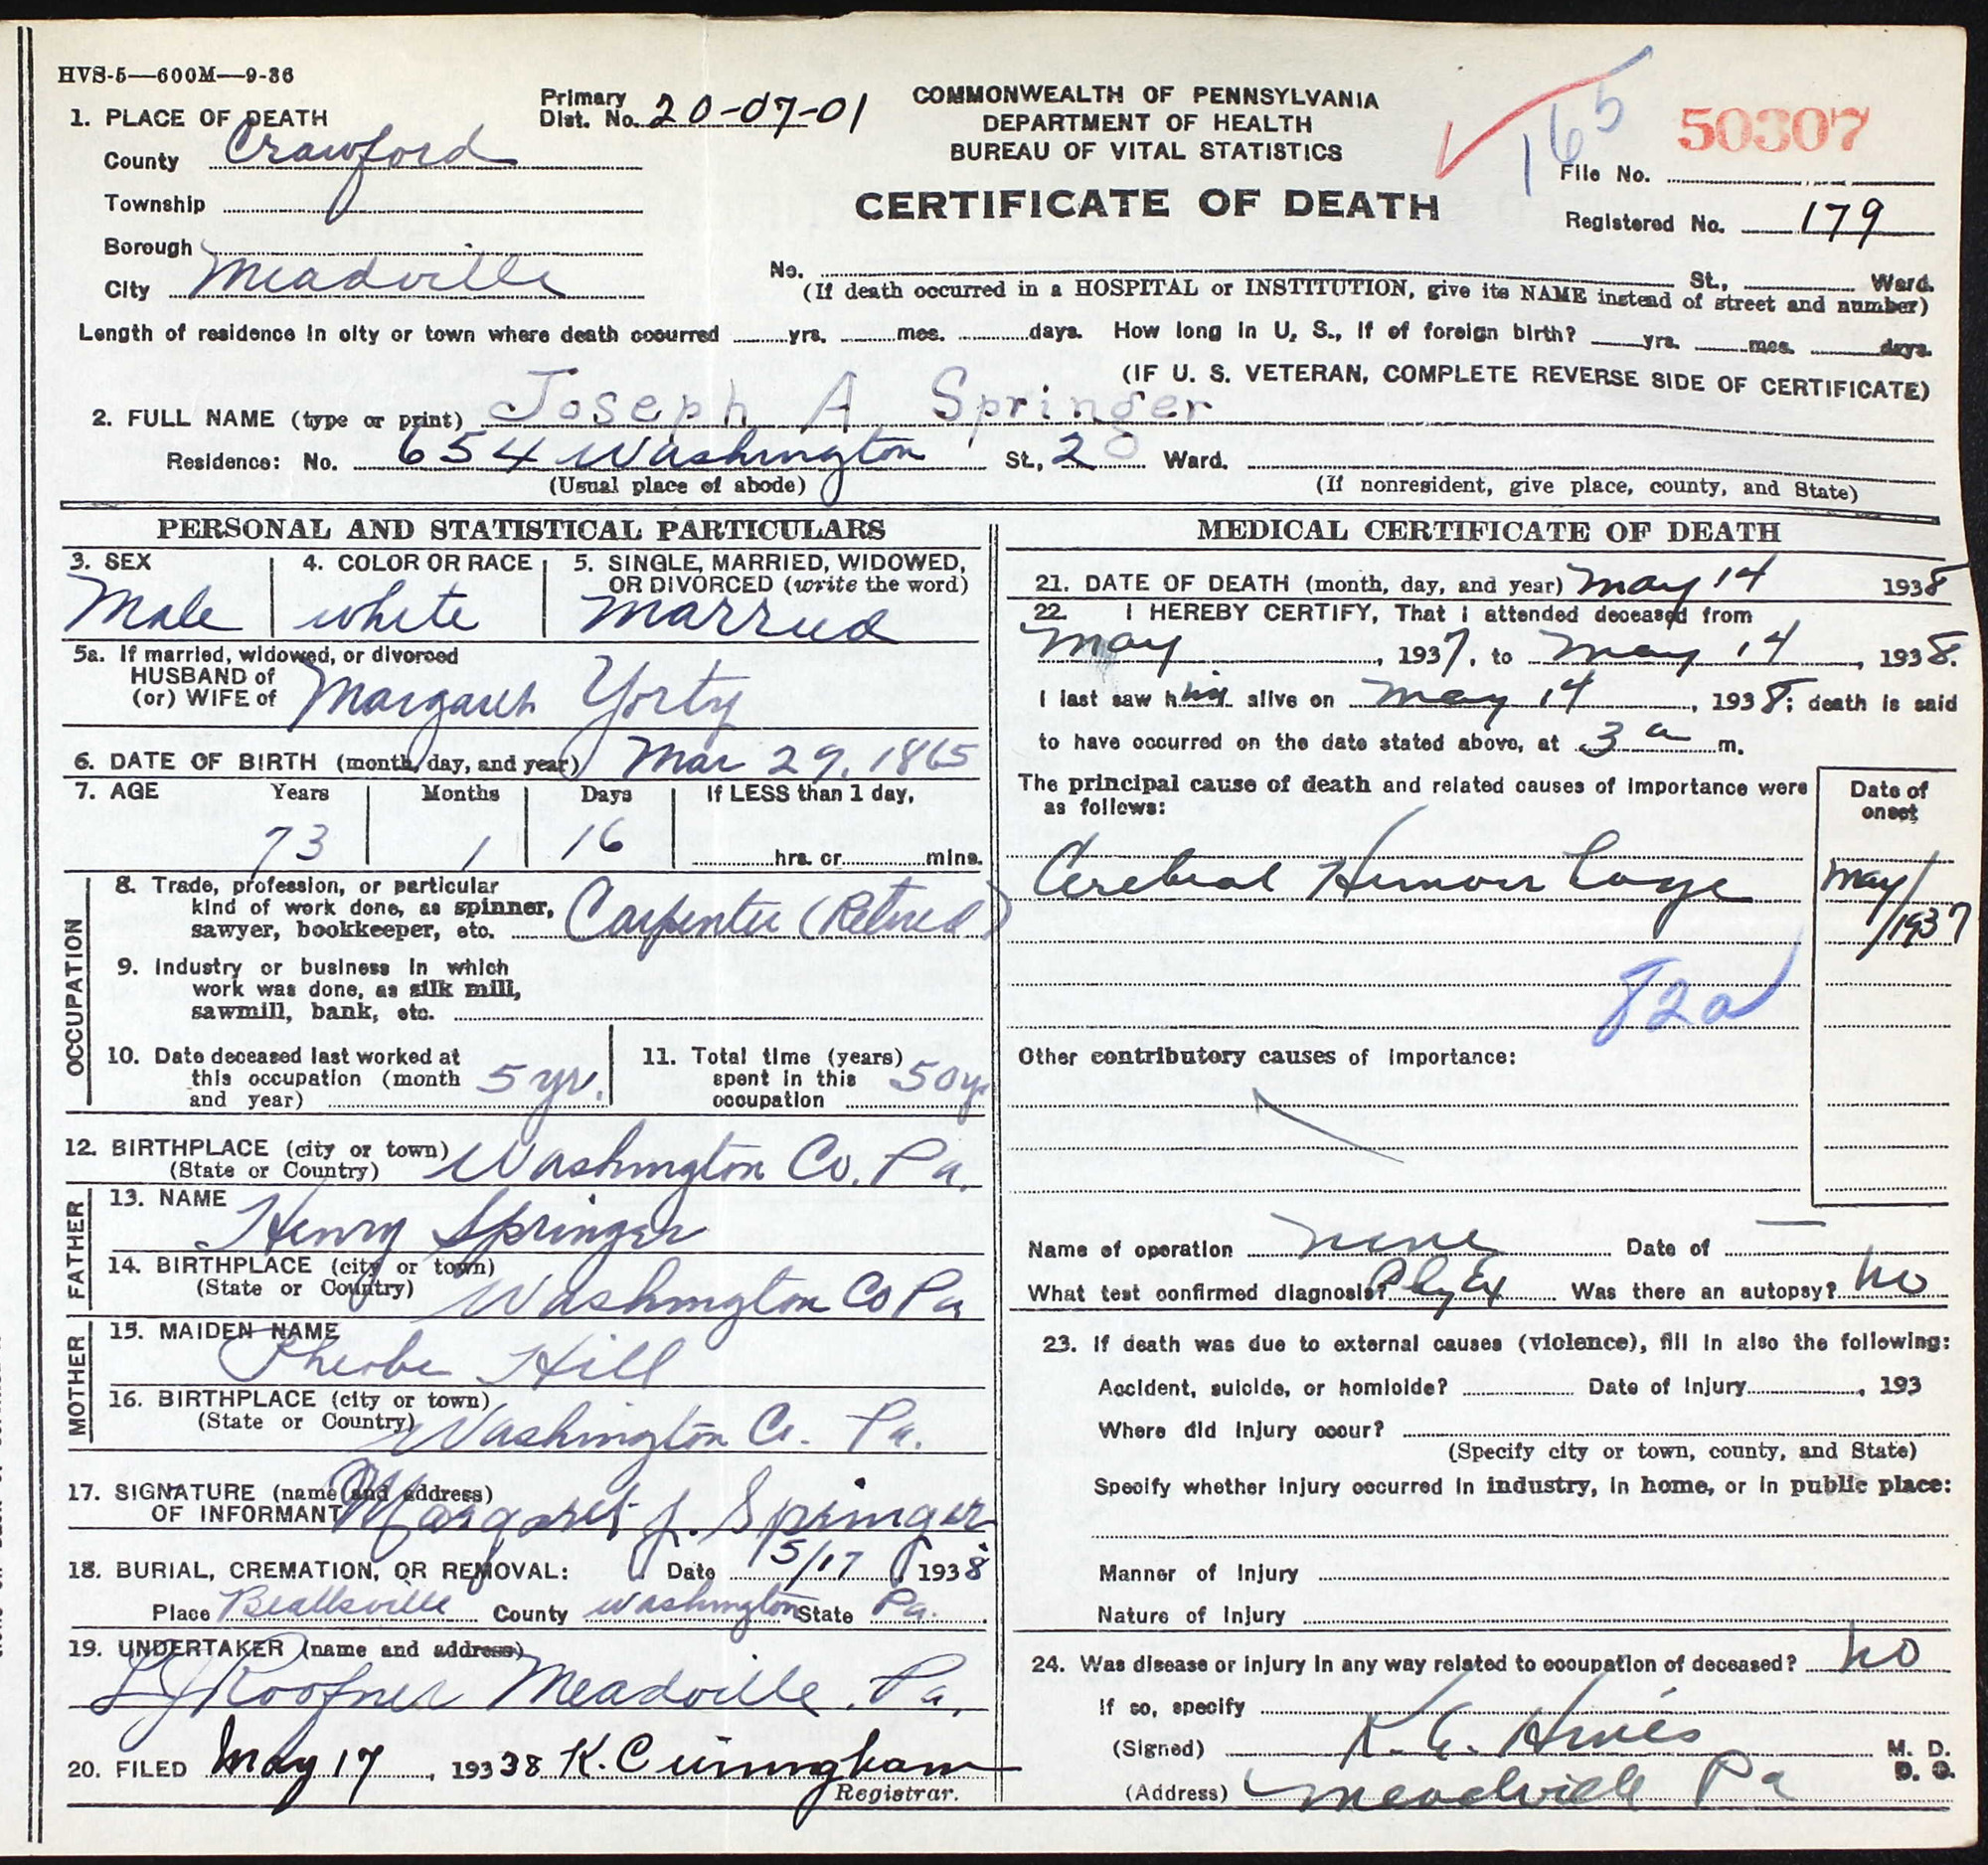 HVS-5—600M—9-36
1. PLACE OF DEATH
Primary Dist. No. 20-07-01
COMMONWEALTH OF PENNSYLVANIA
DEPARTMENT OF HEALTH
BUREAU OF VITAL STATISTICS
165
50307
County Crawford
File No.
Township
CERTIFICATE OF DEATH
Registered No. 179
Borough
City Meadville
No. St., Ward.
(If death occurred in a HOSPITAL or INSTITUTION, give its NAME instead of street and number)
Length of residence in city or town where death occurred yrs. mos. days. How long in U. S., if of foreign birth? yrs. mos. days.
(IF U. S. VETERAN, COMPLETE REVERSE SIDE OF CERTIFICATE)
2. FULL NAME (type or print) Joseph A Springer
Residence: No. 654 Washington St., 2 Ward.
(Usual place of abode) (If nonresident, give place, county, and State)
PERSONAL AND STATISTICAL PARTICULARS
3. SEX
Male
4. COLOR OR RACE
white
5. SINGLE, MARRIED, WIDOWED, OR DIVORCED (write the word)
Married
5a. If married, widowed, or divorced
HUSBAND of
(or) WIFE of Margaret Yorty
6. DATE OF BIRTH (month, day, and year) Mar 29, 1865
7. AGE Years Months Days If LESS than 1 day,
73 1 16 hrs. or mins.
OCCUPATION
8. Trade, profession, or particular
kind of work done, as spinner,
sawyer, bookkeeper, etc. Carpenter (Retired)
9. Industry or business in which
work was done, as silk mill,
sawmill, bank, etc.
10. Date deceased last worked at
this occupation (month
and year) 5 yr.
11. Total time (years)
spent in this
occupation 50 yr
12. BIRTHPLACE (city or town)
(State or Country) Washington Co. Pa.
FATHER
13. NAME
Henry Springer
14. BIRTHPLACE (city or town)
(State or Country) Washington Co Pa
MOTHER
15. MAIDEN NAME
Pheobe Hill
16. BIRTHPLACE (city or town)
(State or Country) Washington Co. Pa.
17. SIGNATURE (name and address)
OF INFORMANT Margaret J. Springer
18. BURIAL, CREMATION, OR REMOVAL: Date 5/17, 1938
Place Beallsville County Washington State Pa.
19. UNDERTAKER (name and address)
LJ Roofner Meadville, Pa.
20. FILED May 17, 193 38 K. Cunningham
Registrar.
MEDICAL CERTIFICATE OF DEATH
21. DATE OF DEATH (month, day, and year) May 14 1938
22. I HEREBY CERTIFY, That I attended deceased from
May, 1937, to May 14, 1938.
I last saw him alive on May 14, 1938; death is said
to have occurred on the date stated above, at 3 a m.
The principal cause of death and related causes of importance were
as follows:
Date of
onset
Cerebral Hemorrhage
May/
/1937
82a
Other contributory causes of importance:
Name of operation none Date of —
What test confirmed diagnosis? Phy Ex Was there an autopsy? no
23. If death was due to external causes (violence), fill in also the following:
Accident, suicide, or homicide? Date of Injury , 193
Where did injury occur?
(Specify city or town, county, and State)
Specify whether injury occurred in industry, in home, or in public place:
Manner of Injury
Nature of Injury
24. Was disease or injury in any way related to occupation of deceased? no
If so, specify
(Signed) K. E. Hines M. D.
D. O.
(Address) Meadville Pa